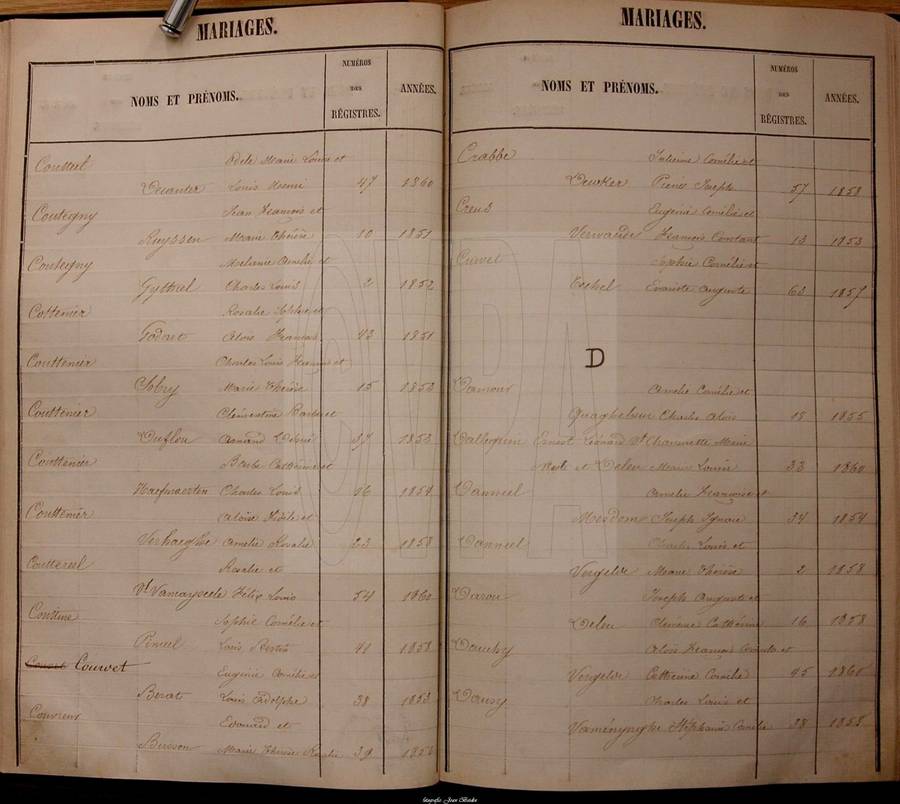 MARIAGES.
NOMS ET PRÉNOMS. NUMÉROS DES RÉGISTRES. ANNÉES.
Coutteel Odele Marie Louise et
Louis Henri 47 1860
Couttegny Jean François et
Ruyssen Marie Thérèse 10 1851
Couttegny Mélanie Amélie et
Charles Louis 2 1852
Cottenier Rosalie Sophie et
Godart Alois François 43 1851
Couttenier Charles Louis François et
Sobry Marie Thérèse 15 1853
Couttenier Clémentine Barbe et
Duflou Armand Désiré 37 1853
Couttenier Barbe Catherine et
Haeymaerten Charles Louis 16 1854
Couttenier Aloïse Fidèle et
Verhaeghe Amélie Rosalie 23 1858
Couttereel Rosalie et
Vt Vamaysele Félix Louis 54 1860
Sophie Cornélie et
Pineel Louis 41 1858
Couvet
Eugénie Amélie et
Berat Louis Adolphe 38 1853
Couvreur Edouard et
Marie Thérèse Rosalie 39 1856
MARIAGES.
NOMS ET PRÉNOMS. NUMÉROS DES RÉGISTRES. ANNÉES.
Crabbe Julienne Cornélie et
Deurker Pierre Joseph 57 1858
Creus Eugénie Cornélie et
François Constant 13 1853
Cuvel Sophie Cornélie et
Evariste Auguste 60 1857
D
Damour Amélie Cornélie et
Quaghebeur Charles Alois 18 1855
Ernest Léonard Vt Marie
et Deleu Marie Louise 33 1860
Danneel Amélie Françoise et
Misdom Joseph Ignace 34 1854
Danneel Charles Louis et
Vergelde Marie Thérèse 2 1858
Darou Joseph Auguste et
Deleu Clémence Cathérine 16 1858
Dauchy Alois François et
Vergelde Cathérine Cornélie 45 1860
Dausy Charles Louis et
Vaményughe Stéphanie Amélie 38 1858
CVPA
fotografie Jean Baske